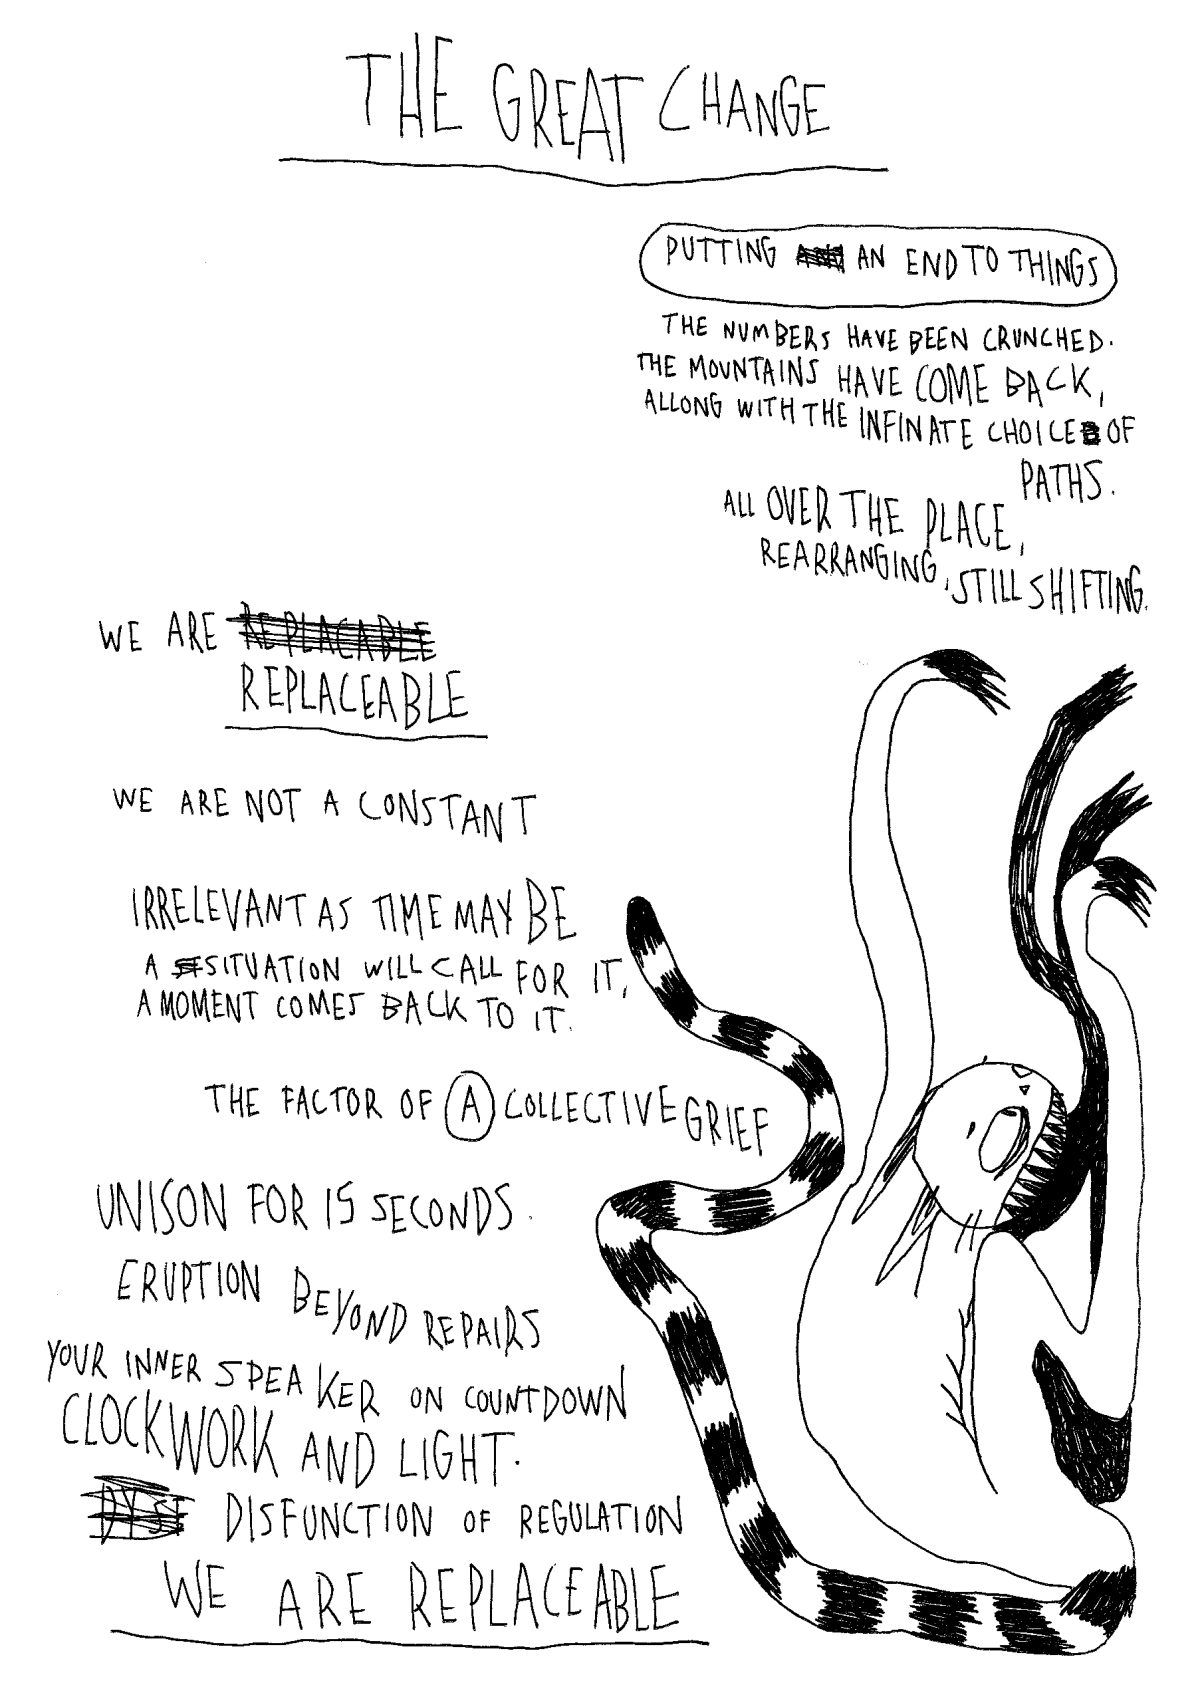 THE GREAT CHANGE
PUTTING AN END TO THINGS
THE NUMBERS HAVE BEEN CRUNCHED.
THE MOUNTAINS HAVE COME BACK,
ALLONG WITH THE INFINATE CHOICE OF
PATHS.
ALL OVER THE PLACE,
REARRANGING, STILL SHIFTING.
WE ARE REPLACABLE
REPLACEABLE
WE ARE NOT A CONSTANT
IRRELEVANT AS TIME MAY BE
A SITUATION WILL CALL FOR IT,
A MOMENT COMES BACK TO IT.
THE FACTOR OF A COLLECTIVE GRIEF
UNISON FOR 15 SECONDS.
ERUPTION BEYOND REPAIRS
YOUR INNER SPEAKER ON COUNTDOWN
CLOCKWORK AND LIGHT.
DISFUNCTION OF REGULATION
WE ARE REPLACEABLE